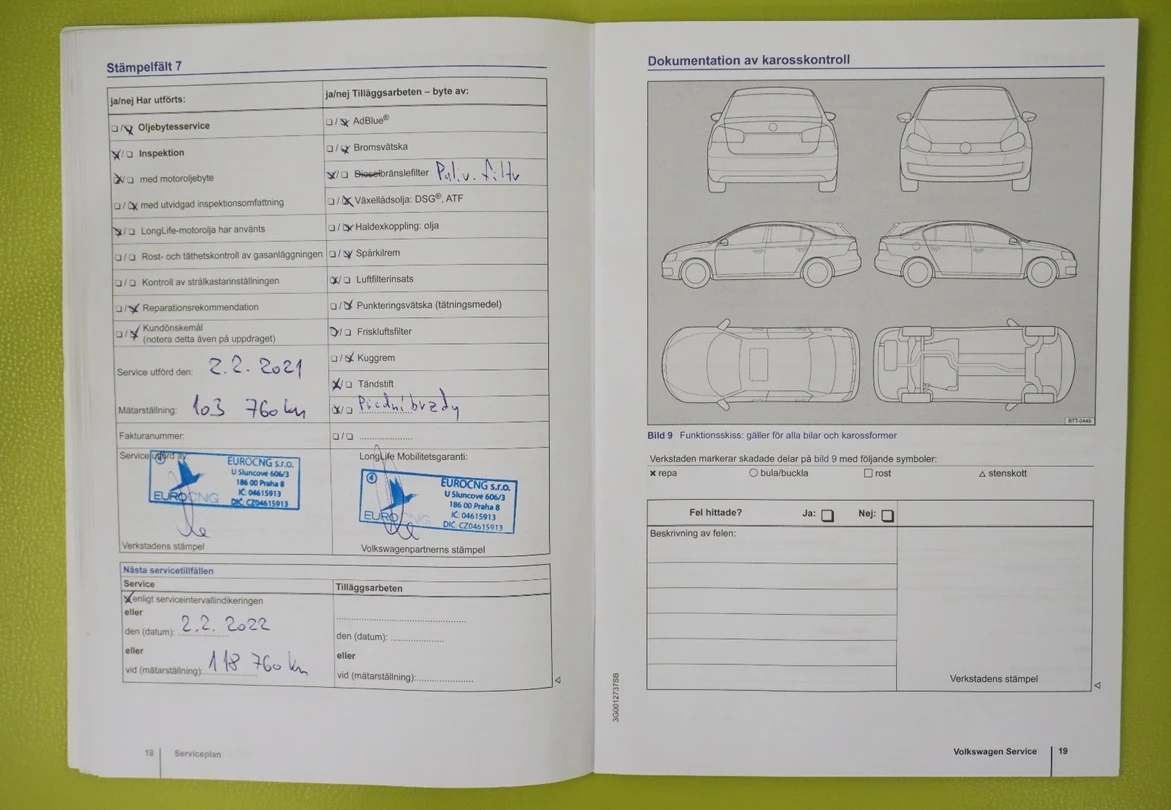 Stämpelfält 7
ja/nej Har utförts:
☐/☒ Oljebytesservice
☒/☐ Inspektion
☒/☐ med motoroljebyte
☐/☒ med utvidgad inspektionsomfattning
☒/☐ LongLife-motorolja har använts
☐/☐ Rost- och täthetskontroll av gasanläggningen
☐/☐ Kontroll av strålkastarinställningen
☐/☒ Reparationsrekommendation
☐/☒ Kundönskemål
(notera detta även på uppdraget)
Service utförd den: 2.2. 2021
Mätarställning: 103 760 km
Fakturanummer:
ja/nej Tilläggsarbeten – byte av:
☐/☒ AdBlue®
☐/☒ Bromsvätska
☒/☐ Dieselbränslefilter Paliv. filtr
☐/☒ Växellådsolja: DSG®, ATF
☐/☒ Haldexkoppling: olja
☐/☒ Spårkilrem
☒/☐ Luftfilterinsats
☐/☒ Punkteringsvätska (tätningsmedel)
☒/☐ Friskluftsfilter
☐/☒ Kuggrem
☒/☐ Tändstift
☒/☐ Přední brzdy
☐/☐ ......................
Service utförd av:
EUROCNG
EUROCNG s.r.o.
U Sluncové 606/3
186 00 Praha 8
IČ: 04615913
DIČ: CZ04615913
Verkstadens stämpel
LongLife Mobilitetsgaranti:
④
EUROCNG
EUROCNG s.r.o.
U Sluncové 606/3
186 00 Praha 8
IČ: 04615913
DIČ: CZ04615913
Volkswagenpartnerns stämpel
Nästa servicetillfällen
Service
☒ enligt serviceintervallindikeringen
eller
den (datum): 2.2. 2022
eller
vid (mätarställning): 118 760 km
Tilläggsarbeten
den (datum): ......................
eller
vid (mätarställning):......................
18 Serviceplan
Dokumentation av karosskontroll
B7T-0449
Bild 9 Funktionsskiss: gäller för alla bilar och karossformer
Verkstaden markerar skadade delar på bild 9 med följande symboler:
× repa ○ bula/buckla □ rost △ stenskott
Fel hittade? Ja: ☐ Nej: ☐
Beskrivning av felen:
Verkstadens stämpel
3G0012737SB
Volkswagen Service 19